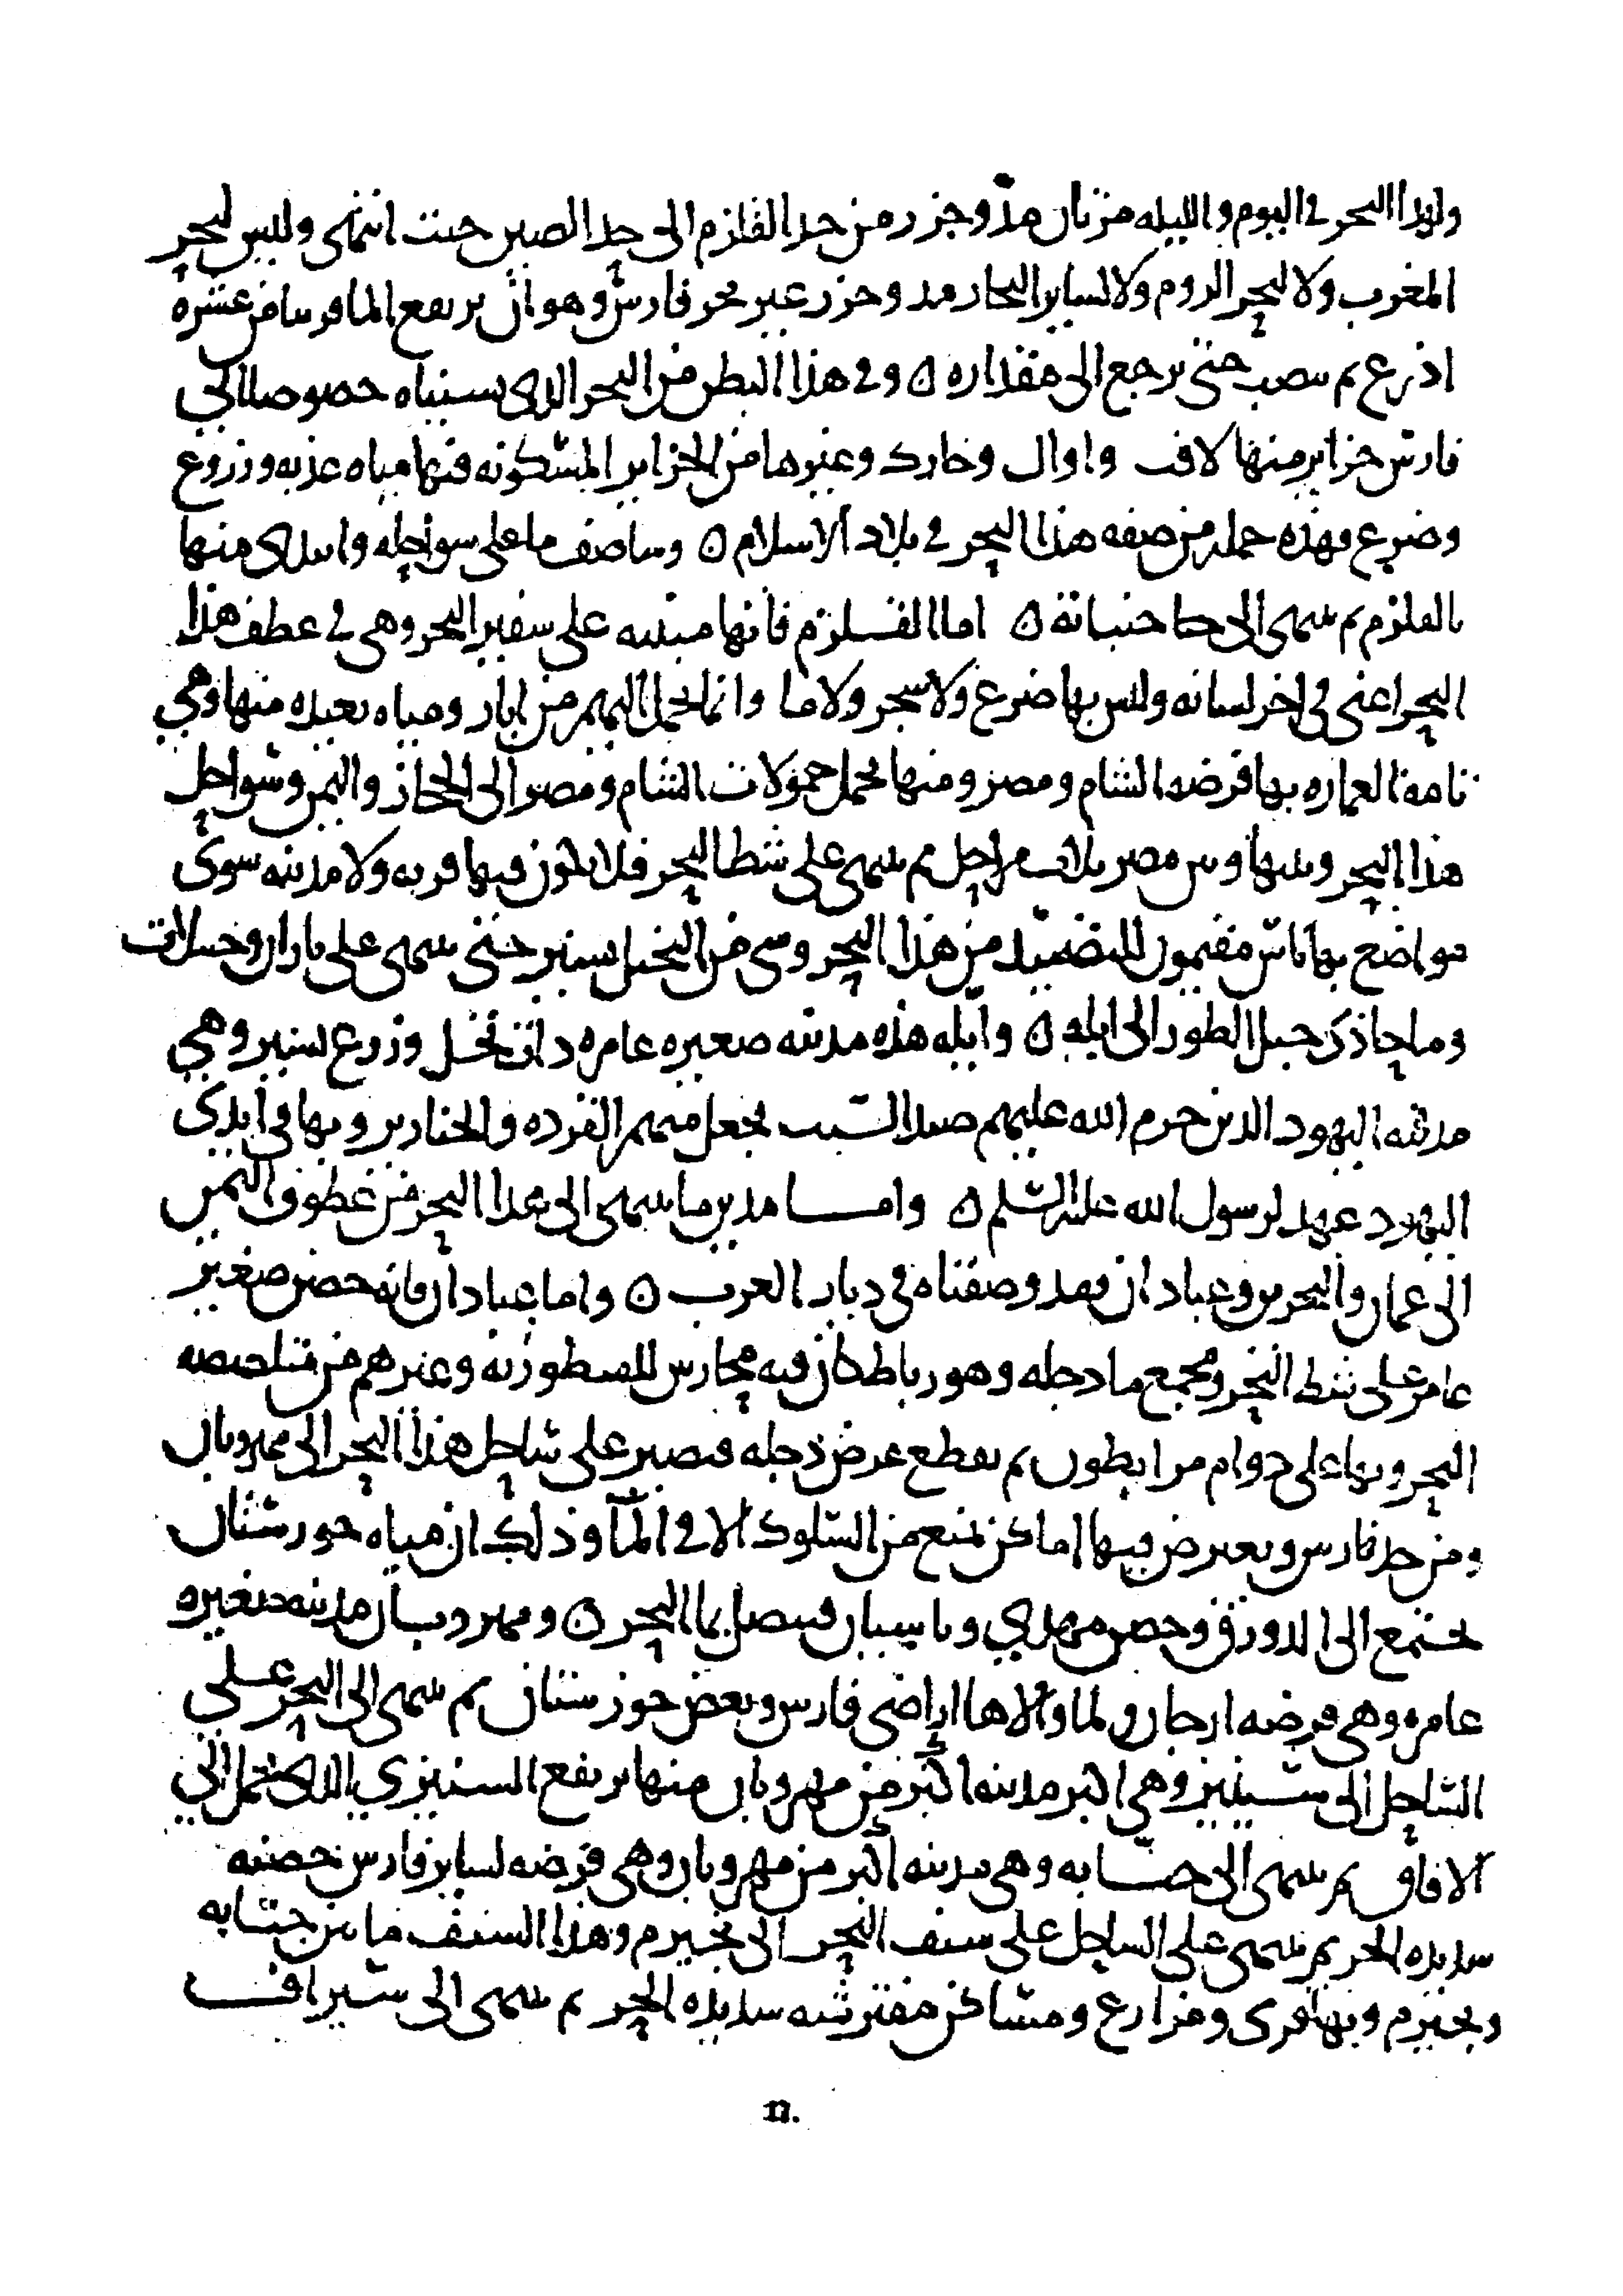 ولهذا البحر في اليوم والليله مرتان مد وجزر من حد القلزم الى حد الصين حيث انتهى وليس لبحر
المغرب ولا لبحر الروم ولا لساير البحار مد وجزر غير بحر فارس وهو ان يرتفع الما قريبا من عشره
اذرع ثم ينصب حتى يرجع الى مقداره ٥ وفي هذا البطن من البحر الذى نسبناه خصوصا الى
فارس جزاير منها لافت واوال وخارك وغيرها من الجزاير المسكونه فيها مياه عذبه وزروع
وضرع فهذه جمله من صفه هذا البحر في بلاد الاسلام ٥ وساصف ما على سواحله وابتدى منها
بالقلزم ثم ينتهى الى حنابة ٥ اما القلزم فانها مبنيه على شفير البحر وهى في عطف هذا
البحر اعنى في اخر لسانه وليس بها ضرع ولا شجر ولا ما وانما يحمل اليهم من ابار ومياه بعيده منها وهي
تامة العماره بها فرضه الشام ومصر ومنها يحمل حمولات الشام ومصر الى الحجاز واليمن وسواحل
هذا البحر وبينها وبين مصر ثلاث مراحل ثم ينتهى على شط البحر فلا يكون فيها قريه ولا مدينه سوى
مواضع بها ناس مقيمون للتصيد من هذا البحر وشى من النخل يسير حتى ينتهى على تاران وجبيلات
وما حاذى جبل الطور الى ايله ٥ وايله هذه مدينه صغيره عامره ذات نخل وزرع يسير وهي
مدينه اليهود الذين حرم الله عليهم صيد السبت فجعل منهم القرده والخنازير وبها في ايدى
اليهود عهد لرسول الله عليه السلم ٥ واما مدين وما ينتهى الى هذا البحر من عطوف اليمن
الى عمان والبحرين وعبادان فقد وصفناه في ديار العرب ٥ واما عبادان فانه حصن صغير
عامر على شط البحر ومجمع ما دجله وهو رباط كان فيه محارس للقطريه وغيرهم من متلصصه
البحر وبها على دوام مرابطون ثم يقطع عرض دجله فيصير على ساحل هذا البحر الى مهروبان
ومن حد فارس ويعترض فيها اماكن تمنع من السلوك الا في الما وذلك ان مياه خورستان
تجتمع الى الدورق وحصن مهدي وباسيان فيتصل بما البحر ٥ ومهروبان مدينه صغيره
عامره وهى فرضه ارجان ولما والاها اراضى فارس وبعض خوزستان ثم ينتهى الى البحر على
الساحل الى سينيز وهي اكبر مدينه اكبر من مهروبان منها يرتفع السينيزي الذى يحمل الى
الافاق ثم ينتهى الى جنابه وهى مدينه اكبر من مهروبان وهى فرضه لساير فارس خصبه
شديده الحر ثم ينتهى على الساحل على سيف البحر الى نجيرم وهذا السيف ما بين جنابه
ونجيرم وبها قرى ومزارع ومساكن مفترشه شديده الحر ثم ينتهى الى سيراف